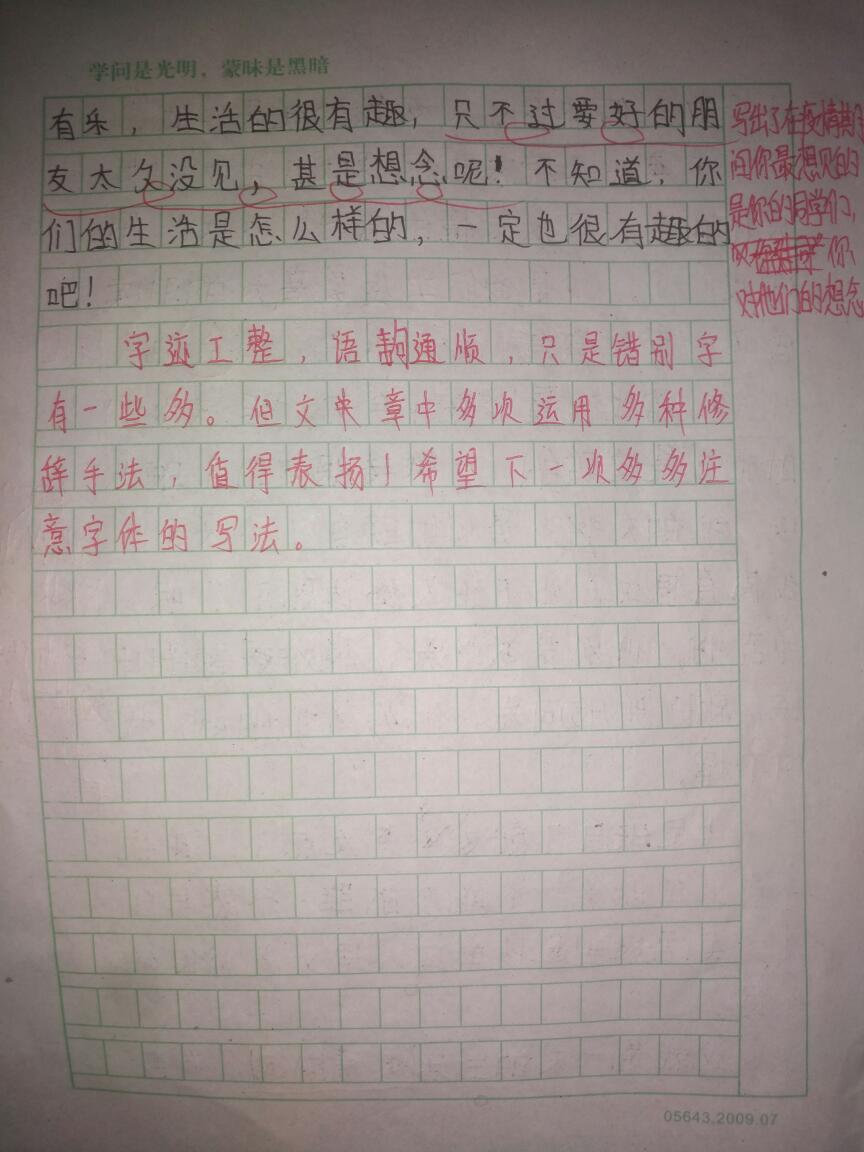 学问是光明，蒙昧是黑暗
有乐，生活的很有趣，只不过要好的朋
友太久没见，甚是想念呢！不知道，你
们的生活是怎么样的，一定也很有趣的
吧！
写出了在疫情期
间你最想见的
是你的同学们，
你
对他们的想念
字迹工整，语句通顺，只是错别字
有一些多。但文章中多次运用多种修
辞手法，值得表扬！希望下一次多多注
意字体的写法。
05643.2009.07